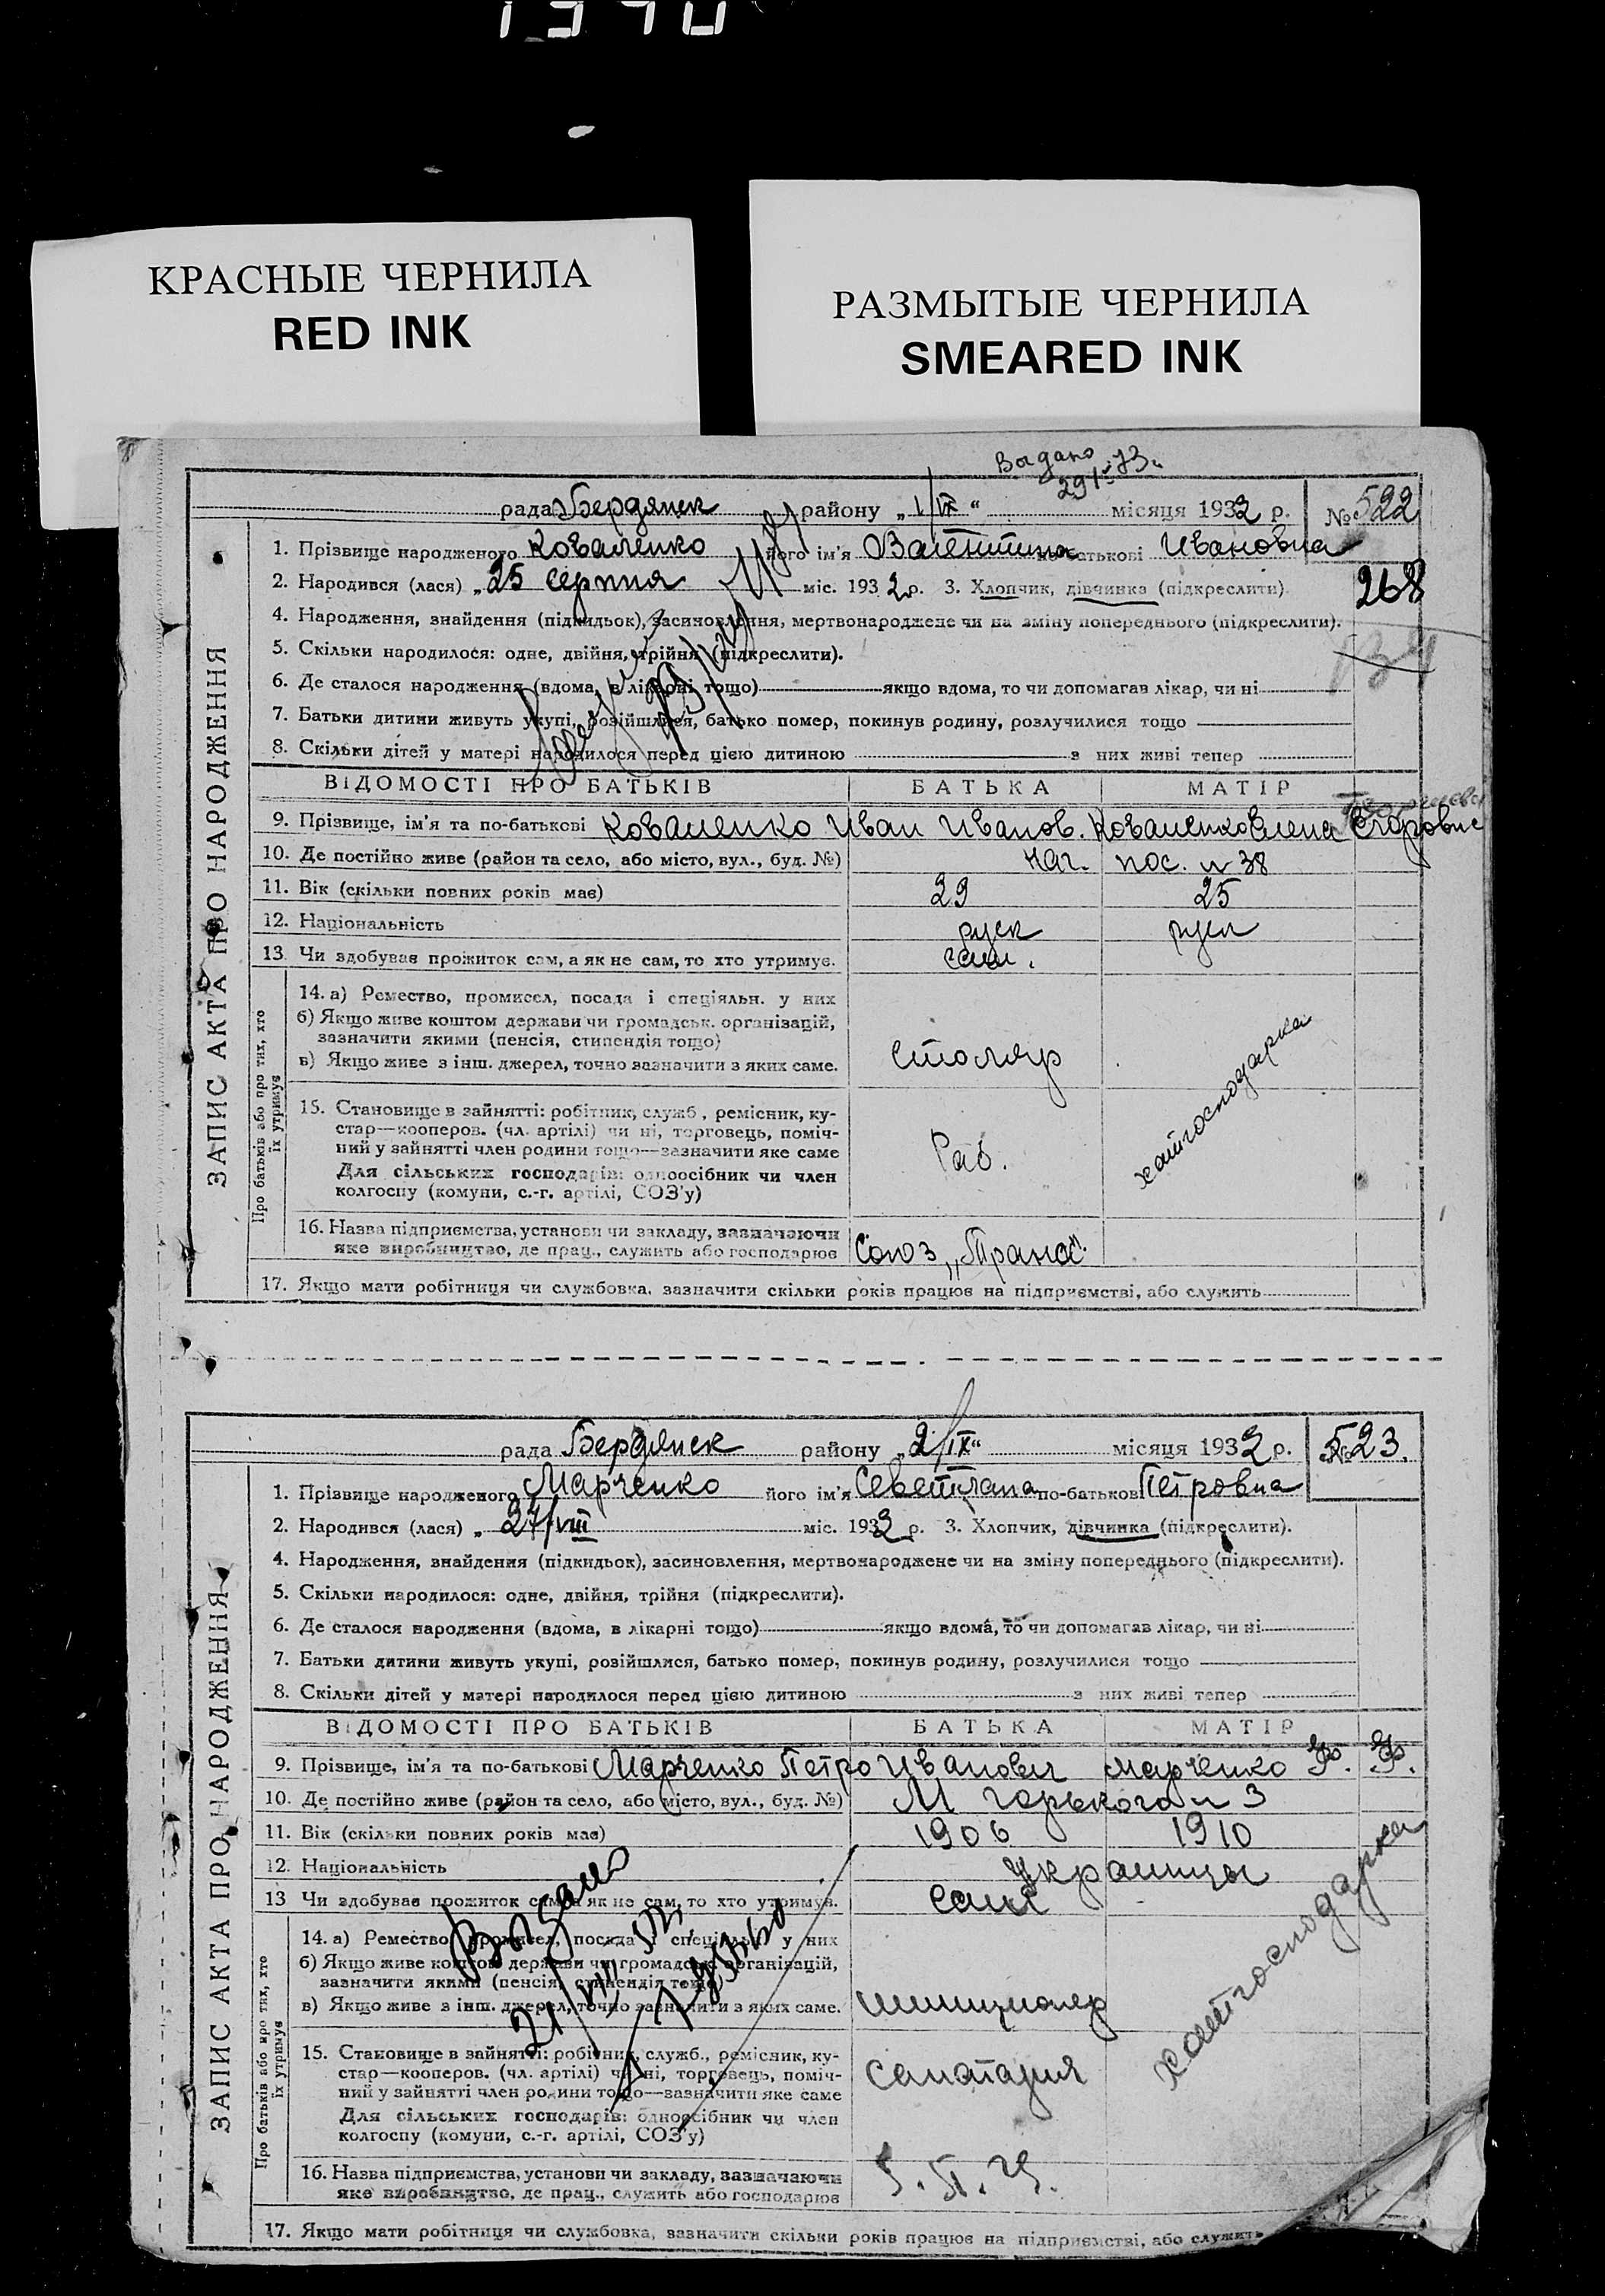 1370
КРАСНЫЕ ЧЕРНИЛА
RED INK
РАЗМЫТЫЕ ЧЕРНИЛА
SMEARED INK
рада Бердянск району „ 1/IX “ місяця 1932 р. № 522
1. Прізвище народженого Коваленко його ім'я Валентина по-батькові Ивановна
2. Народився (лася) „ 25 серпня міс. 1932 р. 3. Хлопчик, дівчинка (підкреслити)
268
4. Народження, знайдення (підкидьок), засиновлення, мертвонароджене чи на зміну попереднього (підкреслити).
5. Скільки народилося: одне, двійня, трійня (підкреслити).
6. Де сталося народження (вдома, в лікарні тощо) якщо вдома, то чи допомагав лікар, чи ні
7. Батьки дитини живуть укупі, розійшлися, батько помер, покинув родину, розлучилися тощо
8. Скільки дітей у матері народилося перед цією дитиною з них живі тепер
ВІДОМОСТІ ПРО БАТЬКІВ БАТЬКА МАТІР
9. Прізвище, ім'я та по-батькові Коваленко Иван Иванов. Коваленко Елена Егоровна
10. Де постійно живе (район та село, або місто, вул., буд. №) Наг. пос. № 38
11. Вік (скільки повних років має) 29 25
12. Національність руск руск
13. Чи здобував прожиток сам, а як не сам, то хто утримує. сам.
14. а) Ремество, промисел, посада і спеціяльн. у них
б) Якщо живе коштом держави чи громадськ. організацій,
зазначити якими (пенсія, стипендія тощо)
в) Якщо живе з інш. джерел, точно зазначити з яких саме. столяр
хатгосподарка
15. Становище в зайнятті: робітник, служб., ремісник, ку-
стар—кооперов. (чл. артілі) чи ні, торговець, поміч-
ний у зайнятті член родини тощо—зазначити яке саме Раб.
Для сільських господарів: одноосібник чи член
колгоспу (комуни, с.-г. артілі, СОЗ'у)
16. Назва підприємства, установи чи закладу, зазначаючи
яке виробництво, де прац., служить або господарює Союз „Транс“
17. Якщо мати робітниця чи службовка, зазначити скільки років працює на підприємстві, або служить
Про батьків або про тих, хто
їх утримує
ЗАПИС АКТА ПРО НАРОДЖЕННЯ
рада Бердянск району „ 2/IX “ місяця 1932 р. № 523.
1. Прізвище народженого Марченко його ім'я Севетлана по-батькові Петровна
2. Народився (лася) „ 27/VIII міс. 1932 р. 3. Хлопчик, дівчинка (підкреслити).
4. Народження, знайдення (підкидьок), засиновлення, мертвонароджене чи на зміну попереднього (підкреслити).
5. Скільки народилося: одне, двійня, трійня (підкреслити).
6. Де сталося народження (вдома, в лікарні тощо) якщо вдома, то чи допомагав лікар, чи ні
7. Батьки дитини живуть укупі, розійшлися, батько помер, покинув родину, розлучилися тощо
8. Скільки дітей у матері народилося перед цією дитиною з них живі тепер
ВІДОМОСТІ ПРО БАТЬКІВ БАТЬКА МАТІР
9. Прізвище, ім'я та по-батькові Марченко Петро Иванович Марченко
10. Де постійно живе (район та село, або місто, вул., буд. №) М Горького № 3
11. Вік (скільки повних років має) 1906 1910
12. Національність Украинцы
13 Чи здобував прожиток сам, а як не сам, то хто утримує. сам
Выдано
14. а) Ремество, промисел, посада і спеціяльн. у них
б) Якщо живе коштом держави чи громадськ. організацій,
зазначити якими (пенсія, стипендія тощо)
в) Якщо живе з інш. джерел, точно зазначити з яких саме.
хатгосподарка
15. Становище в зайнятті: робітник, служб., ремісник, ку-
стар—кооперов. (чл. артілі) чи ні, торговець, поміч-
ний у зайнятті член родини тощо—зазначити яке саме
Для сільських господарів: одноосібник чи член
колгоспу (комуни, с.-г. артілі, СОЗ'у)
16. Назва підприємства, установи чи закладу, зазначаючи
яке виробництво, де прац., служить або господарює
17. Якщо мати робітниця чи службовка, зазначити скільки років працює на підприємстві, або служить
Про батьків або про тих, хто
їх утримує
ЗАПИС АКТА ПРО НАРОДЖЕННЯ